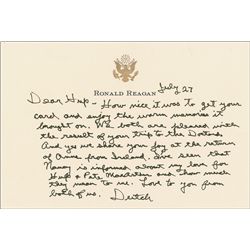 RONALD REAGAN
July 27
Dear Hup - How nice it was to get your
card, and enjoy the warm memories it
brought on. We both are pleased with
the result of your trip to the Doctors.
And yes we share your joy at the return
of Anne from Ireland. I've seen that
Nancy is informed about my love for
Hup & Pate and how much
they mean to me. Love to you from
both of us.
Dutch